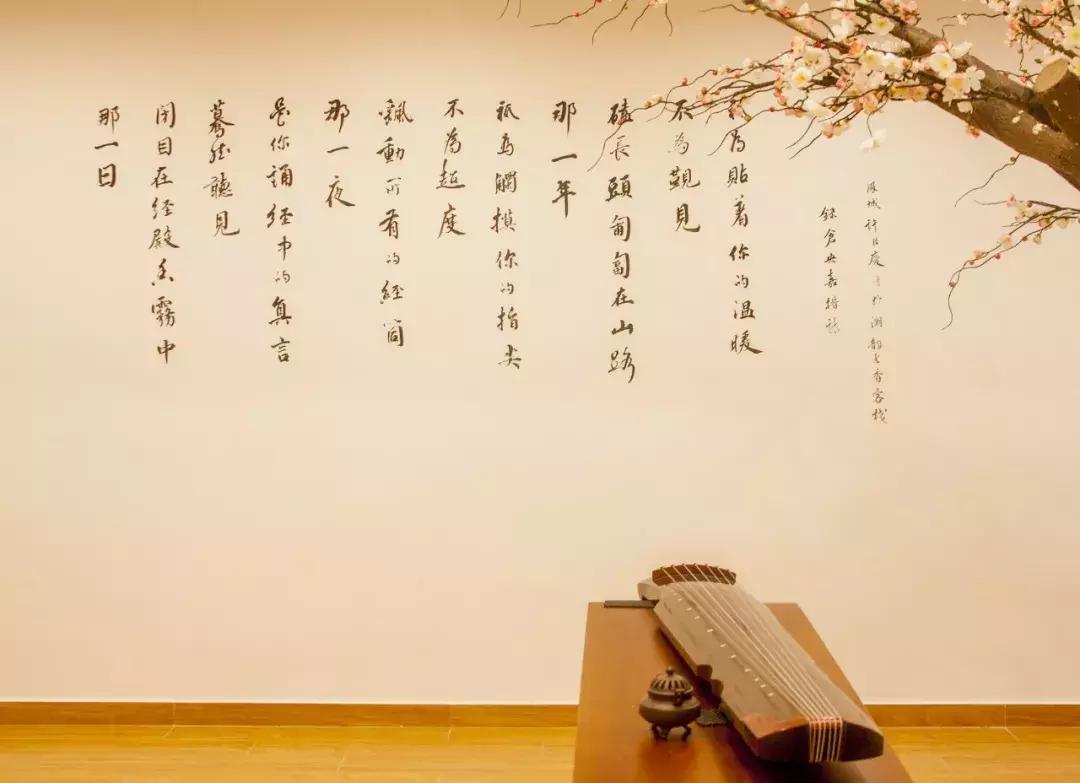 那一日
閉目在經殿香霧中
驀然聽見
是你誦經中的真言
那一夜
飄動所有的經筒
不為超度
祇為觸摸你的指尖
那一年
磕長頭匍匐在山路
不為覲見
為貼着你的溫暖
錄倉央嘉措詩
鳳城許慶書於潮韵香客栈